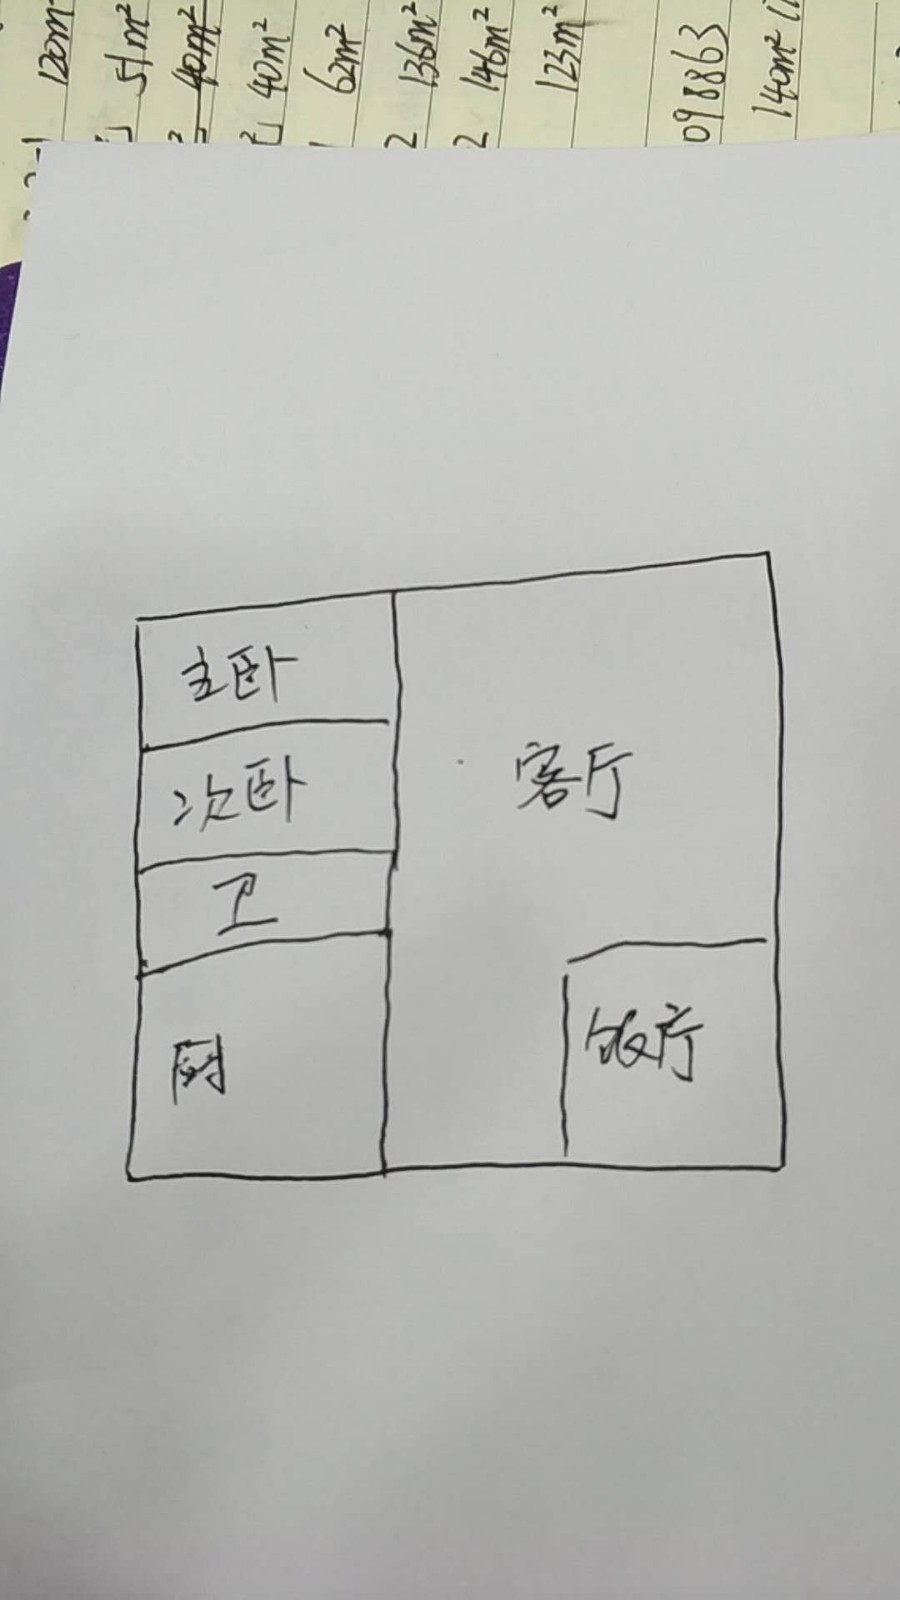 120m²
51m²
40m²
40m²
62m²
136m²
146m²
123m²
098863
140m²
主卧
次卧
客厅
卫
厨
饭厅